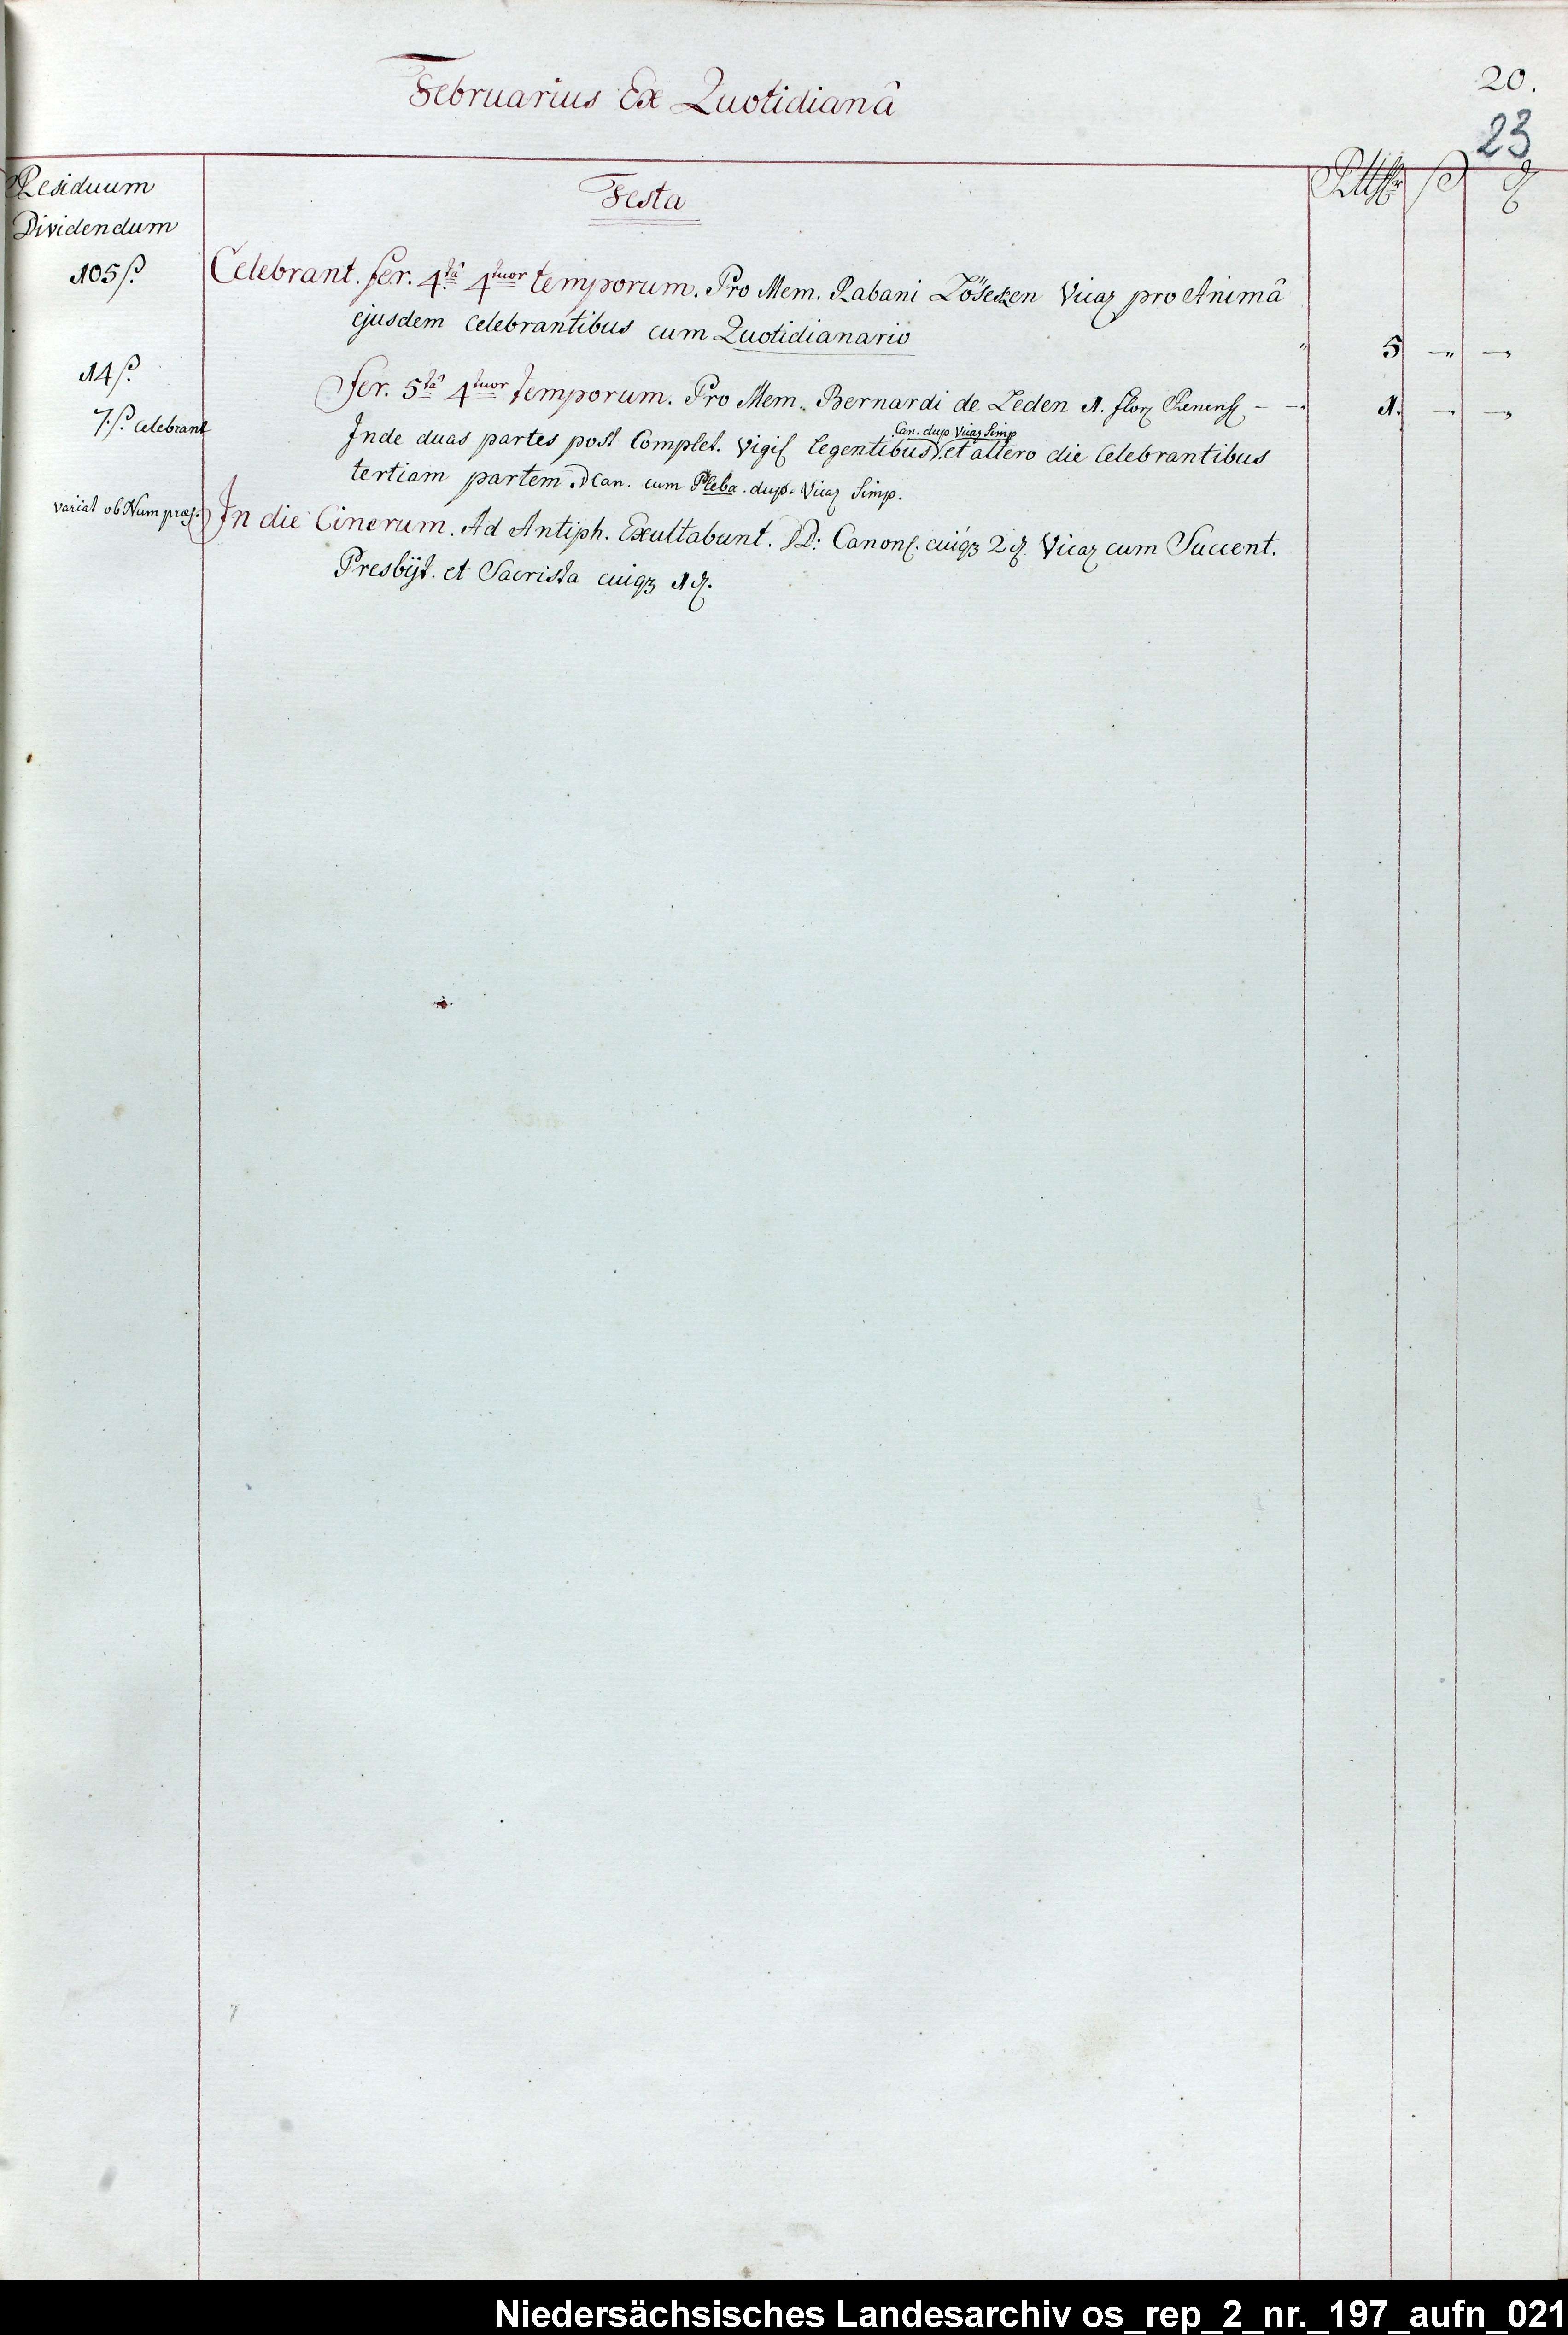 Februarius Ex Quotidianâ
20.
23
Residuum
Dividendum
Festa
Rttlr ß ₰
105 ß.
Celebrant. fer. 4tâ 4tuor temporum. Pro Mem. Rabani Lösecken Vicar pro Animâ
ejusdem celebrantibus cum Quotidianario " 5 -" -"
14 ß.
fer. 5tâ 4tuor temporum. Pro Mem. Bernardi de Leden 1. flor Renens - -" 1. -" -"
7. ß. celebrant
Can. dup Vicar Simp
Inde duas partes post Complet. Vigil legentibus, et altero die Celebrantibus
tertiam partem. D Can. cum Pleba. dup. Vicar Simp.
variat ob Num præs.
In die Cinerum. Ad Antiph. Exultabunt. DD: Canon. cuiq3 2 ₰. Vicar cum Succent.
Presbyt. et Sacrista cuiq3 1 ₰.
Niedersächsisches Landesarchiv os_rep_2_nr._197_aufn_021